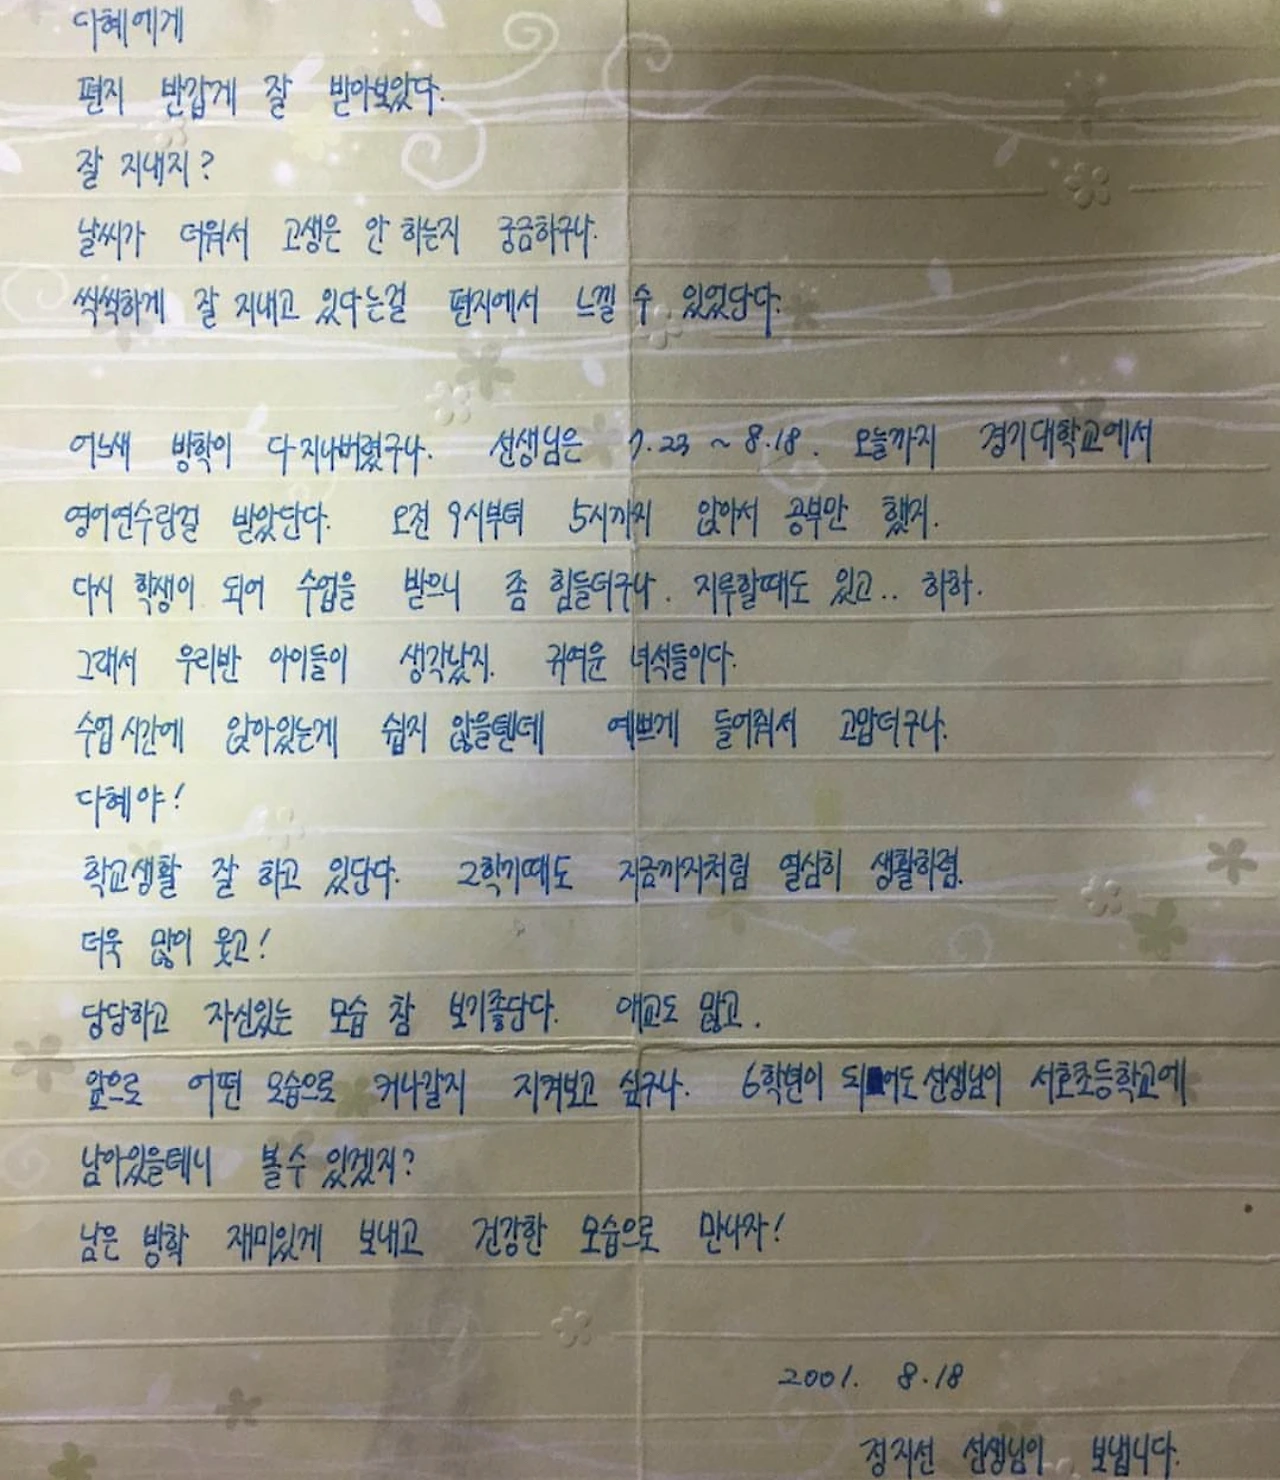 다혜에게
편지 반갑게 잘 받아보았다.
잘 지내지?
날씨가 더워서 고생은 안 하는지 궁금하구나.
씩씩하게 잘 지내고 있다는걸 편지에서 느낄 수 있었단다.
어느새 방학이 다 지나버렸구나. 선생님은 7.23 ~ 8.18. 오늘까지 경기대학교에서
영어연수란걸 받았단다. 오전 9시부터 5시까지 앉아서 공부만 했지.
다시 학생이 되어 수업을 받으니 좀 힘들더구나. 지루할때도 있고.. 하하.
그래서 우리반 아이들이 생각났지. 귀여운 녀석들이다.
수업 시간에 앉아있는게 쉽지 않을텐데 예쁘게 들어줘서 고맙더구나.
다혜야!
학교생활 잘 하고 있단다. 2학기때도 지금까지처럼 열심히 생활하렴.
더욱 많이 웃고!
당당하고 자신있는 모습 참 보기좋단다. 애교도 많고.
앞으로 어떤 모습으로 커나갈지 지켜보고 싶구나. 6학년이 되어도 선생님이 서호초등학교에
남아있을테니 볼수 있겠지?
남은 방학 재미있게 보내고 건강한 모습으로 만나자!
2001. 8.18
정지선 선생님이 보냅니다.